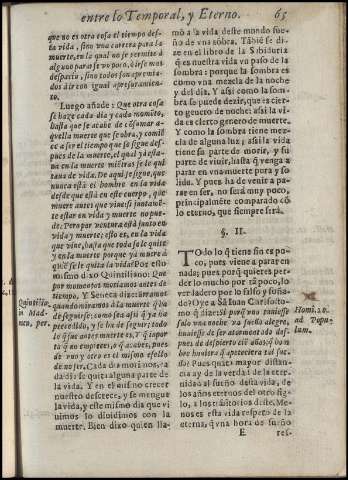 entre lo Temporal, y Eterno. 65
que no es otra cosa el tiempo des-
ta vida, sino vna carrera para la
muerte, en la qual no se permite à
alguno parar se vn poco, ò irse mas
despacio, sino todos son apremia-
dos à ir con igual apresuramien-
to.
Luego añade: Que otra cosa
se haze cada dia y cada momēto,
hasta que se acabe de cōsumar a-
quella muerte que se obra, y comiē
ce a ser el tiempo que se sigue des-
pues de la muerte, el qual yà esta-
ua en la muerte miētras se le qui-
taua de vida. De aqui se sigue, que
nunca està el hombre en la vida
desde que està en este cuerpo, que
muere antes que viue: si juntamē-
te estar en vida y muerte no pue-
de. O por ventura està junto en
vida y muerte; esso es, en la vida
que viue, hasta que toda se le quite
y en la muerte porque yà muere à
que se le quita la vida? Por esto
mismo dixo Quintiliano: Que
por momentos moriamos antes de
muerte. Y Seneca dize: Erramos
quando miramos à la muerte q̄ ha
de seguirse: como sea assi q̄ ya ha
precedido, y se ha de seguir; todo
lo que fue antes muerte es, Y q̄ impor
ta q̄ no empiece, o q̄ acabe, pues
de vno y otro es el mismo efecto
de no ser. Cada dia morimos, ca
da dia se quita alguna parte de
la vida. Y en el mismo crecer
nuestro decrece, y se mengua
la vida, y este mismo dia que vi
uimos lo diuidimos con la
muerte. Bien dixo quien lla-
Quintilia.
in Mad-
neco, per.
mò a la vida deste mundo sue-
ño de vna sobra. Tābiē se di-
ze en el libro de la Sabiduria
q̄ es nuestra vida vn passo de la
sombra: porque la sombra es
como vna mezcla de la noche
y del dia. Y assi como la som
bra se puede dezir, que es cier-
to genero de noche: assi la vi-
da es cierto genero de muerte.
Y como la sombra tiene mez-
cla de alguna luz; assi la vida
tiene su parte de morir, y su
parte de viuir, hasta q̄ venga a
parar en vna muerte pura y so-
lida. Y pues ha de venir a pa-
rar en no ser, no serà muy poco,
principalmēte comparado cō
lo eterno, que siempre serà.
§. II.
Todo lo q̄ tiene fin es po-
co, pues viene a parar en
nada; pues porq̄ quieres per-
der lo mucho por tā poco, lo
verdadero por lo falso y soña-
do? Oye a Sā Iuan Crisosto-
mo q̄ dize: Si por q̄ vno tuuiesse
solo vna noche vn sueño alegre,
huuiesse de ser atormentado des-
pues de despierto ciē años; q̄ hom
bre huuiera q̄ apeteciera tal sue-
ño? Pues quāto mayor distan-
cia ay de la verdad de la eter-
nidad al sueño desta vida, de
los años eternos del otro si-
glo, a los trāsitorios deste. Me-
nos es esta vida respeto de la
eterna, q̄ vna hora de sueño
Homi. 20.
ad Popu-
lum.
E
res-